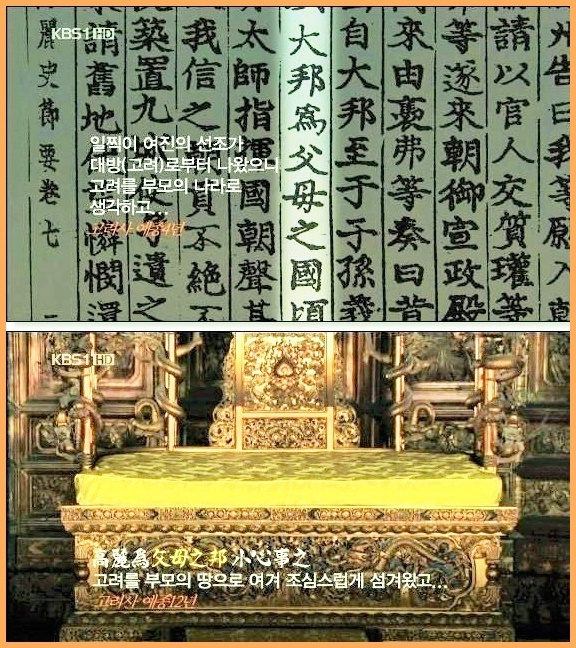 州告曰我等
請以官人交質瓘等
等遂來朝御宣政殿
來由裊弗等奏曰昔
自大邦至于子孫義
大邦爲父母之國頃
太師指揮國朝聲其
我信之 貢不絕不
築置九 遺之
請舊地 憐憫還
麗史節要卷七
KBS1 HD
일찍이 여진의 선조가
대방(고려)로부터 나왔으니
고려를 부모의 나라로
생각하고...
고려사 예종4년
KBS1 HD
高麗為父母之邦 小心事之
고려를 부모의 땅으로 여겨 조심스럽게 섬겨왔고...
고려사 예종12년